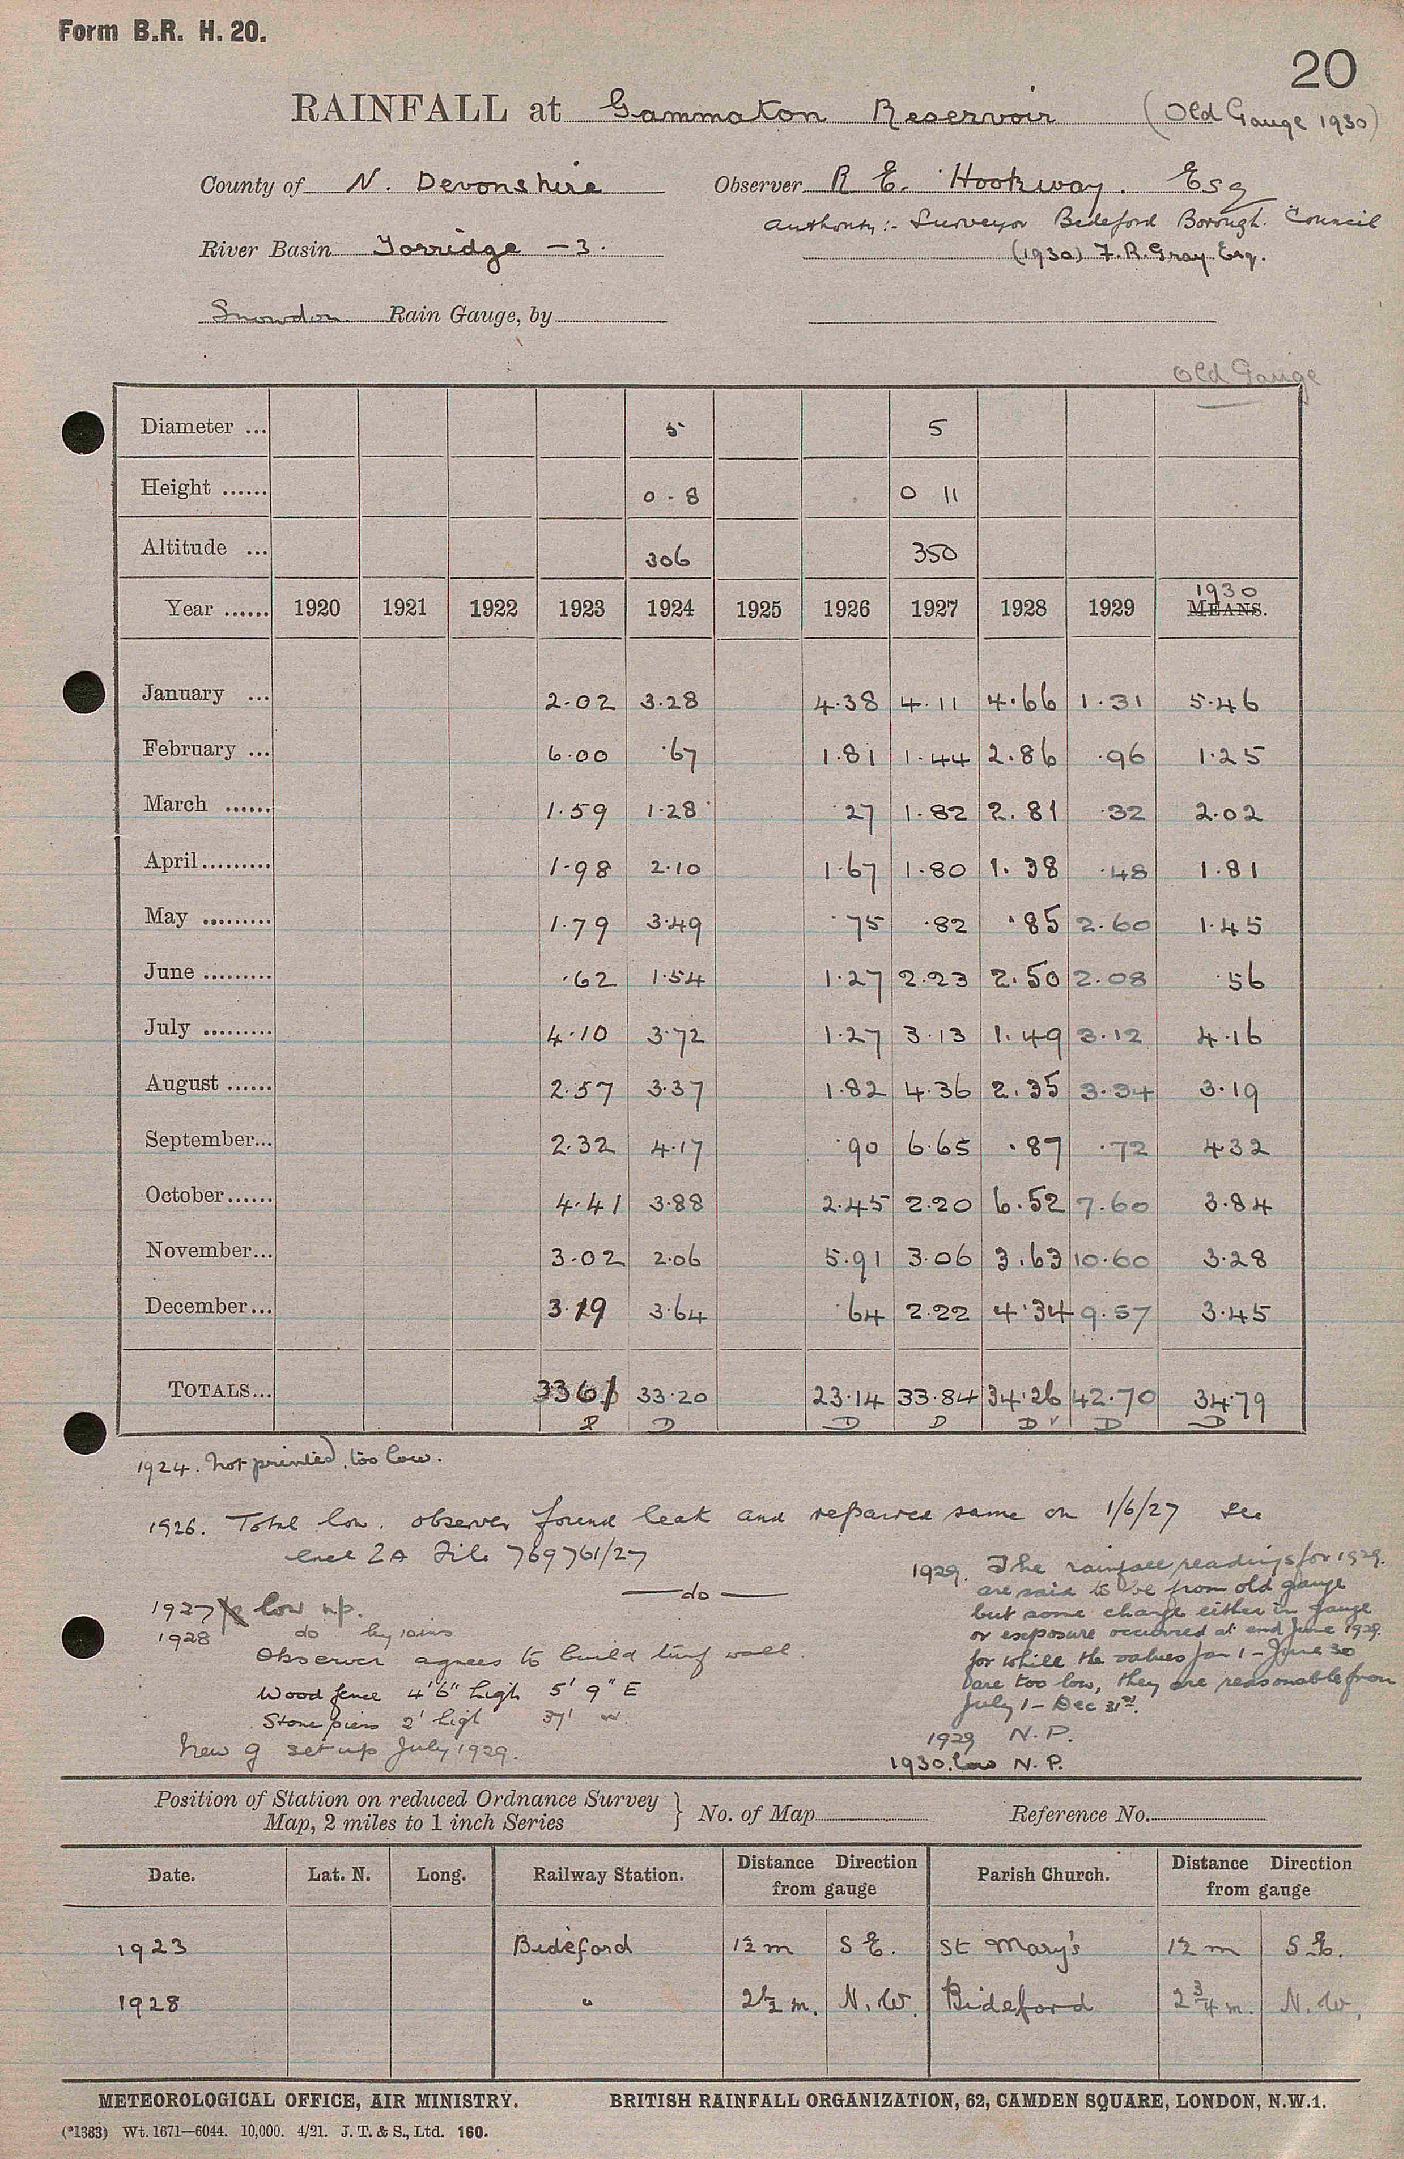 Form B.R. H. 20.
20
RAINFALL at Gammaton Reservoir (Old Gauge 1930)
County of N. Devonshire Observer R E. Hookway. Esq
Authority:- Surveyor Bideford Borough Council
River Basin Torridge - 3. (1930) F.R. Gray Esq.
Snowdon Rain Gauge, by
Old Gauge
Diameter ... 5 5
Height ...... 0 - 8 0 11
Altitude ... 306 350
Year ...... 1920 1921 1922 1923 1924 1925 1926 1927 1928 1929 1930 MEANS.
January ... 2.02 3.28 4.38 4.11 4.66 1.31 5.46
February ... 6.00 .67 1.81 1.44 2.86 .96 1.25
March ...... 1.59 1.28 .27 1.82 2.81 .32 2.02
April ......... 1.98 2.10 1.67 1.80 1.38 .48 1.81
May ......... 1.79 3.49 .75 .82 .85 2.60 1.45
June ......... .62 1.54 1.27 2.23 2.50 2.08 .56
July ......... 4.10 3.72 1.27 3.13 1.49 3.12 4.16
August ...... 2.57 3.37 1.82 4.36 2.35 3.34 3.19
September... 2.32 4.17 .90 6.65 .87 .72 4.32
October ...... 4.41 3.88 2.45 2.20 6.52 7.60 3.84
November... 3.02 2.06 5.91 3.06 3.63 10.60 3.28
December... 3.19 3.64 .64 2.22 4.34 9.57 3.45
TOTALS... 33.61 33.20 23.14 33.84 34.26 42.70 34.79
D D D D D D
1924. Not printed, too low.
1926. Total low. observer found leak and repaired same on 1/6/27 see
encl 2A File 769761/27
— do —
1927 low np.
1928 do
Observer agrees to build turf wall.
Wood fence 4'6" high 5' 9" E
Stone piers 2' high 37' W
New g set up July 1929.
1929. The rainfall readings for 1929.
are said to be from old gauge
but some change either in gauge
or exposure occurred at end June 1929.
for while the values Jan 1 - June 30
are too low, they are reasonable from
July 1 - Dec 31st.
1929 N.P.
1930. low N.P.
Position of Station on reduced Ordnance Survey
Map, 2 miles to 1 inch Series } No. of Map Reference No.
Date. Lat. N. Long. Railway Station. Distance Direction from gauge Parish Church. Distance Direction from gauge
1923 Bideford 1½ m S E. St Mary's 1½ m S.E.
1928 " 2½ m. N.W. Bideford 2¾ m. N.W.
METEOROLOGICAL OFFICE, AIR MINISTRY. BRITISH RAINFALL ORGANIZATION, 62, CAMDEN SQUARE, LONDON, N.W.1.
(*1383) Wt. 1671—6044. 10,000. 4/21. J. T. & S., Ltd. 160.